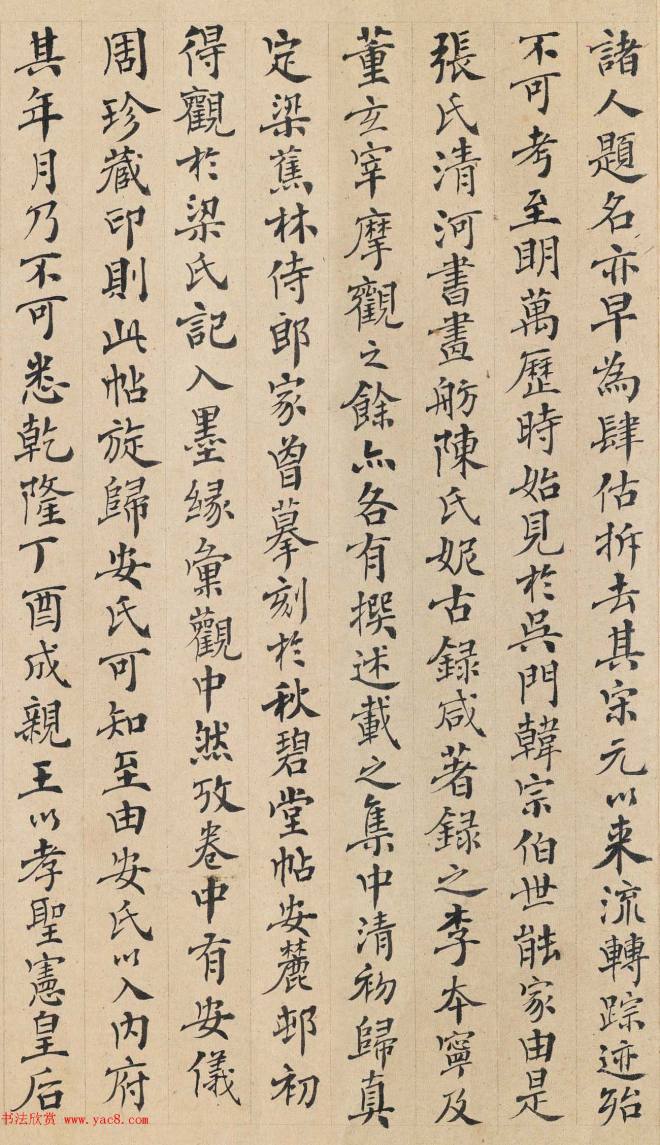 諸人題名亦早為肆估拆去其宋元以来流轉踪迹殆
不可考至明萬歷時始見於吳門韓宗伯世能家由是
張氏清河書畫舫陳氏妮古録咸著録之李本寧及
董玄宰摩觀之餘亦各有撰述載之集中清初歸真
定梁蕉林侍郎家曾摹刻於秋碧堂帖安麓邨初
得觀於梁氏記入墨緣彙觀中然攷卷中有安儀
周珍藏印則此帖旋歸安氏可知至由安氏以入內府
其年月乃不可悉乾隆丁酉成親王以孝聖憲皇后
书法欣赏 www.yac8.com